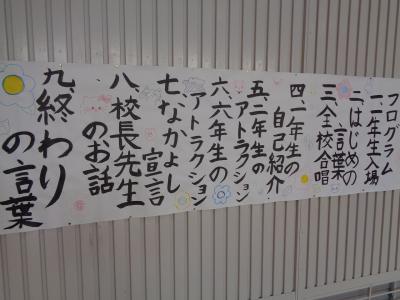 プログラム
一、一年生入場
二、はじめの
言葉
三、全校合唱
四、一年生の
自己紹介
五、二年生の
アトラクション
六、六年生の
アトラクション
七、なかよし
宣言
八、校長先生
のお話
九、終わり
の言葉